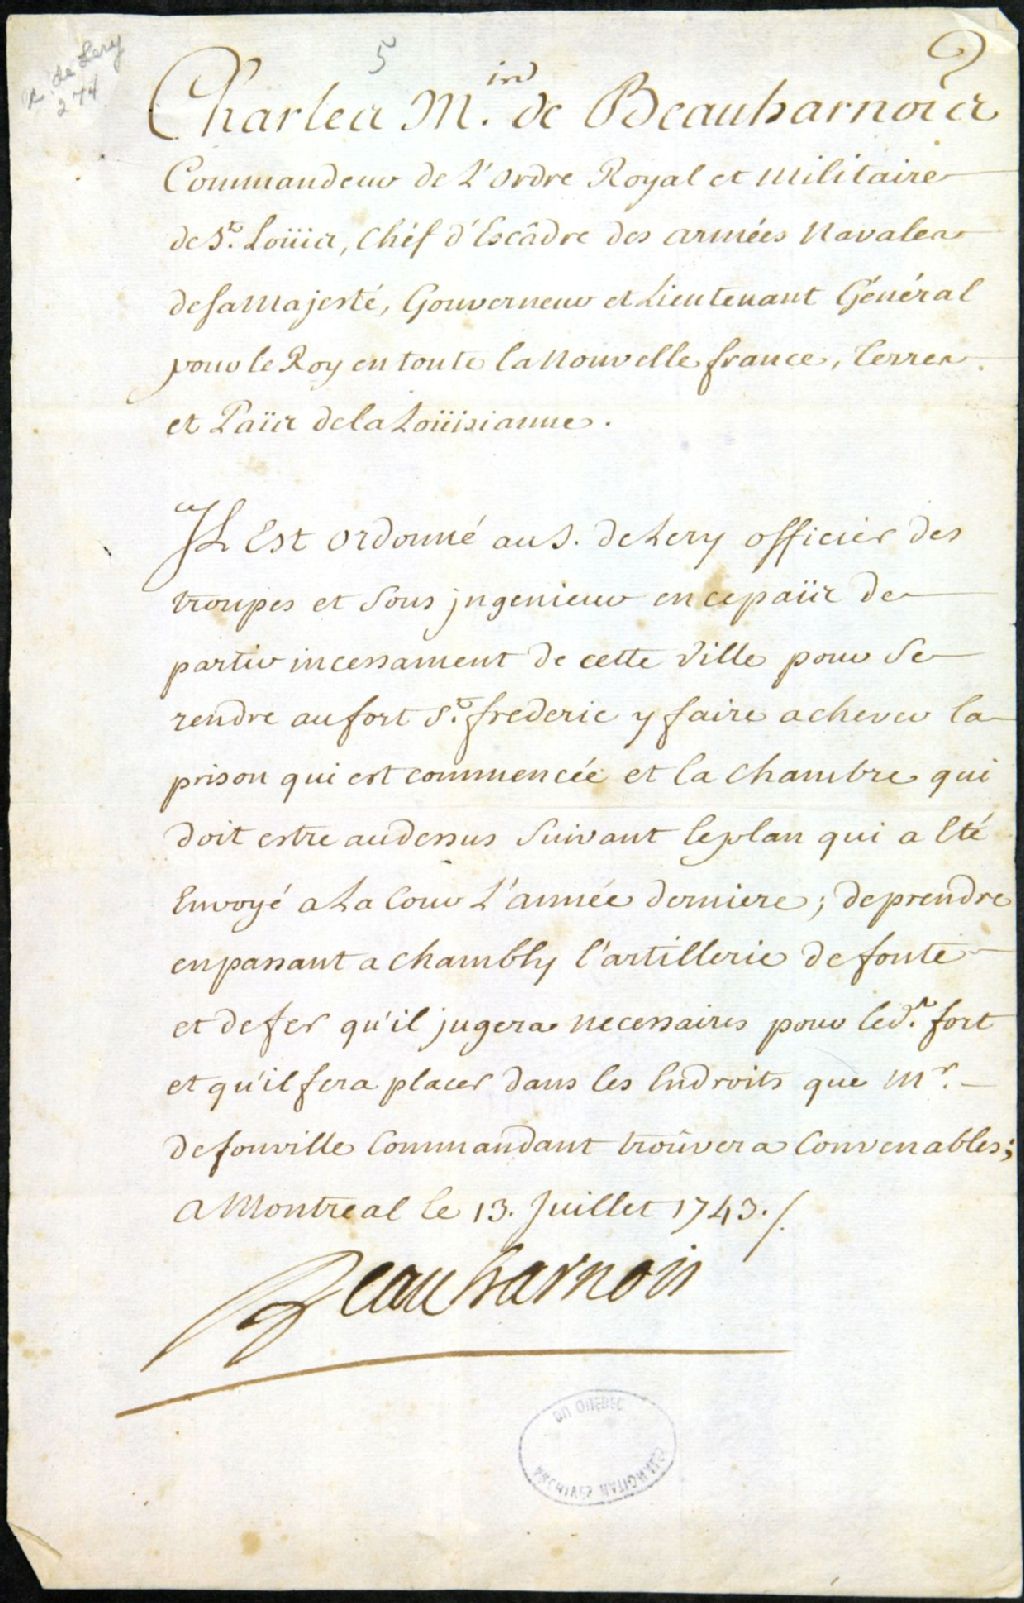 R. de Lery
274
5
2
Charles M.is de Beauharnois
Commandeur de L'ordre Royal et militaire
de St. Loüis, chéf d'Escâdre des armées Navales
de sa Majesté, Gouverneur et Lieutenant Général
pour le Roy en toute la Nouvelle france, terres
et Païis de la Loüisianne.
Il Est ordonné au S. de Lery officier des
troupes et Sous jngenieur en ce païis de
partir incessament de cette Ville pour Se
rendre au fort St. frederic y faire achever la
prison qui est commencée et la Chambre qui
doit estre audessus Suivant le plan qui a Eté
Envoyé a La Cour L'année derniere; de prendre
en passant a chambly l'artillerie de fonte
et de fer qu'il jugera necessaires pour led.t fort
et qu'il fera placer dans les Endroits que Mr.
de jonville Commandant trouvera Convenables;
a Montreal le 13. Juillet 1743./.
Beauharnois
DU QUEBEC
ARCHIVES